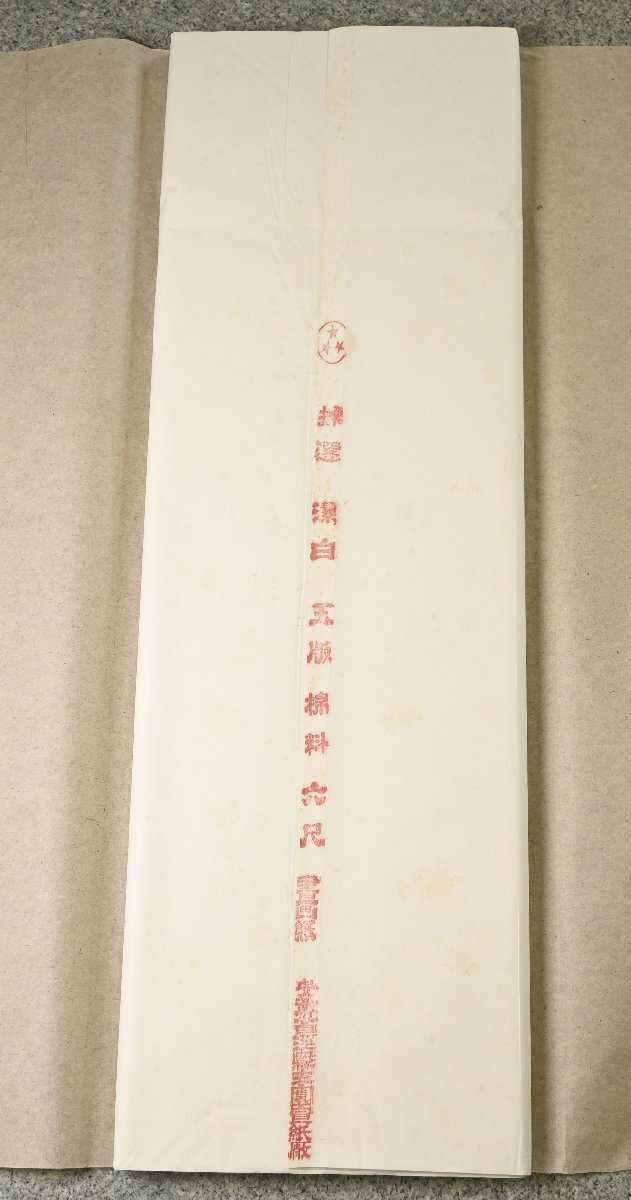 揀選 潔白 玉版 棉料 六尺 書画紙
安徽省涇縣 宣紙厰